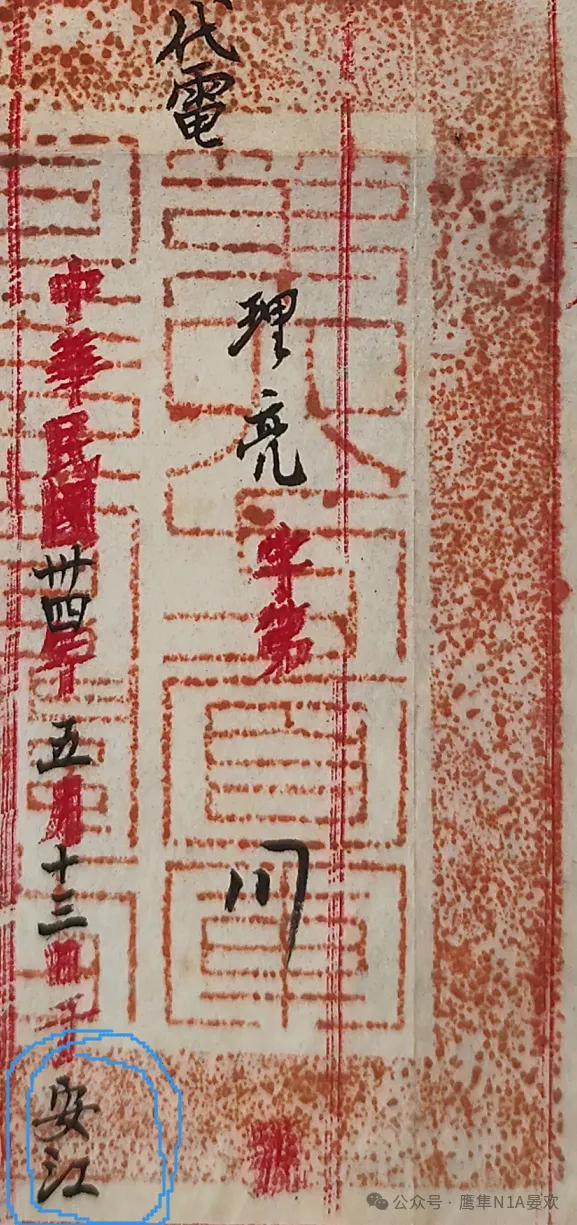 代電
理亮字第川號
中華民國卅四年五月十三日于安江
公众号·鹰隼N1A晏欢